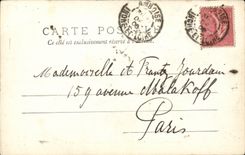 CARTE POSTALE
Ce côté est exclusivement réservé à
Mademoiselle et Frantz Jourdain
159 avenue Malakoff
Paris